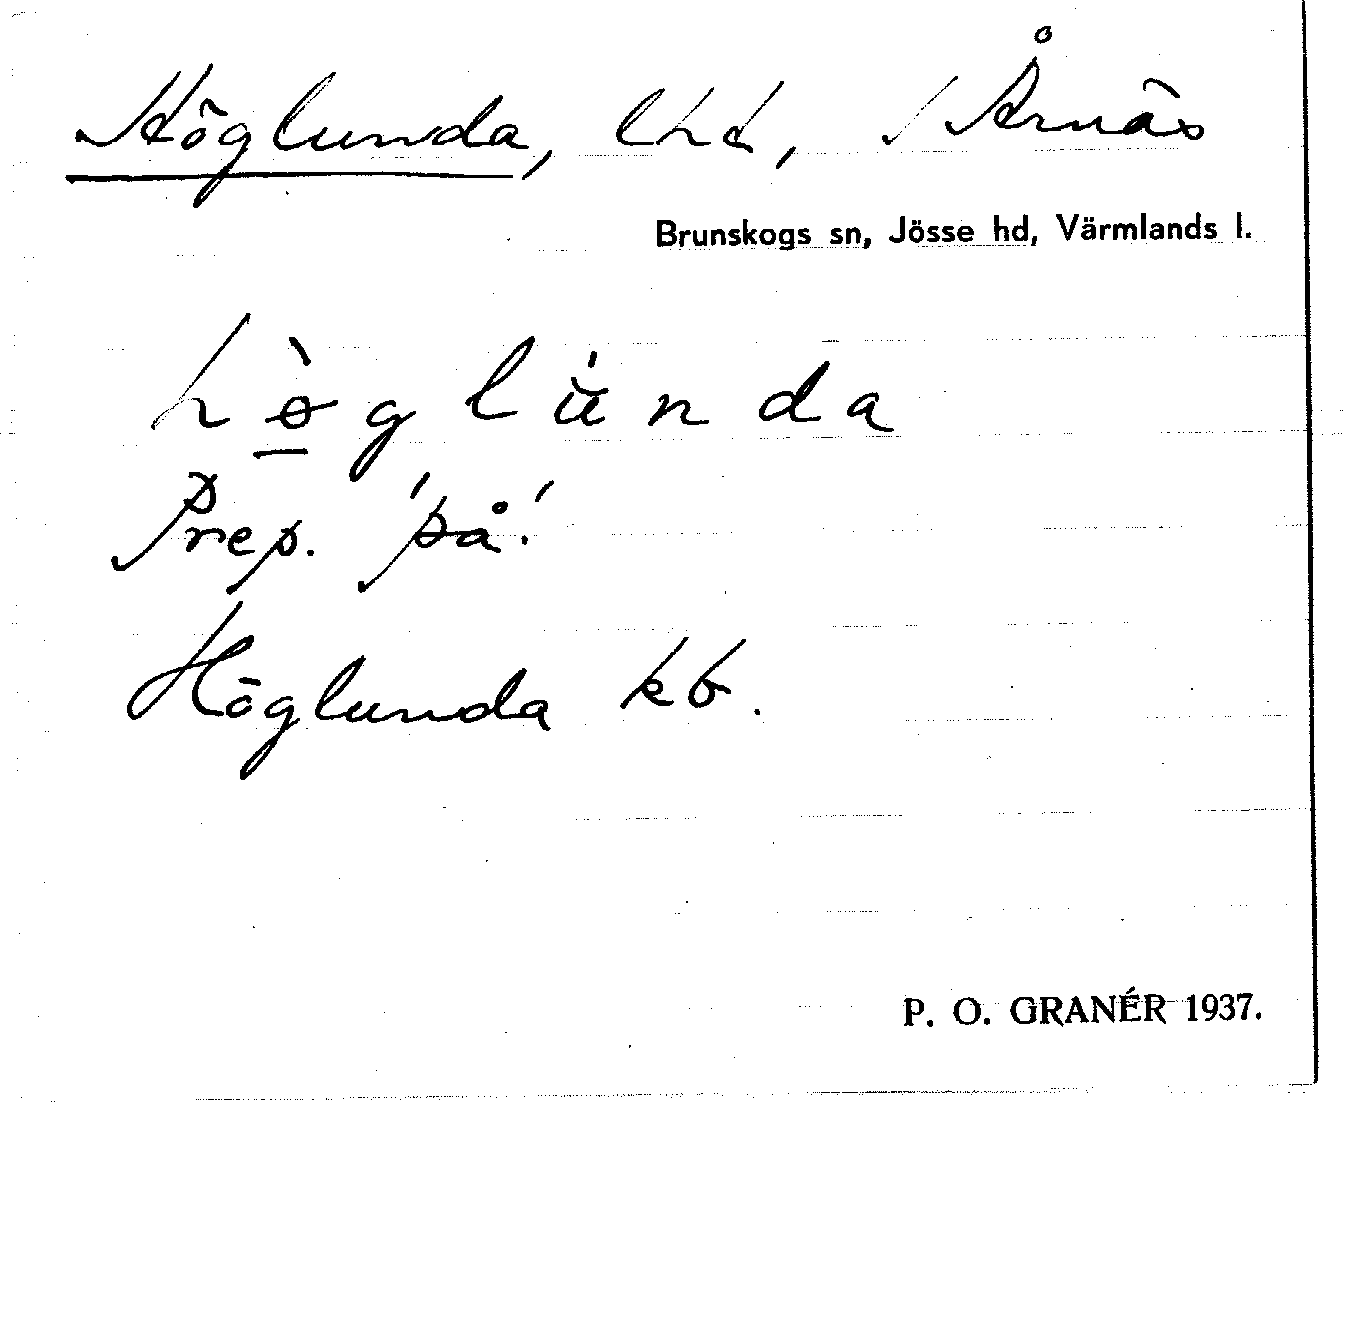 Höglunda, lhd, / Årnäs
Brunskogs sn, Jösse hd, Värmlands l.
hø̀glúnda
Prep. 'på'.
Höglunda kb.
P. O. GRANÉR 1937.